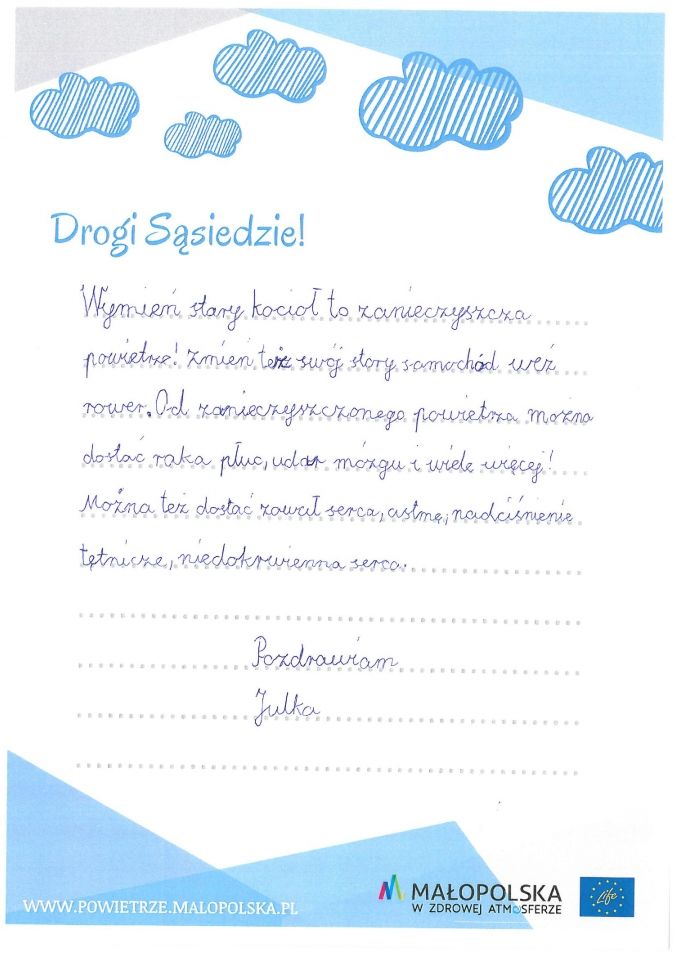 Drogi Sąsiedzie!
Wymień stary kocioł to zanieczyszcza
powietrze! Zmień też swój stary samochód weź
rower. Od zanieczyszczonego powietrza można
dostać raka płuc, udar mózgu i wiele więcej!
Można też dostać zawał serca, astmę, nadciśnienie
tętnicze, niedokrwienna serca.
Pozdrawiam
Julka
WWW.POWIETRZE.MALOPOLSKA.PL
MAŁOPOLSKA
W ZDROWEJ ATMOSFERZE
Life